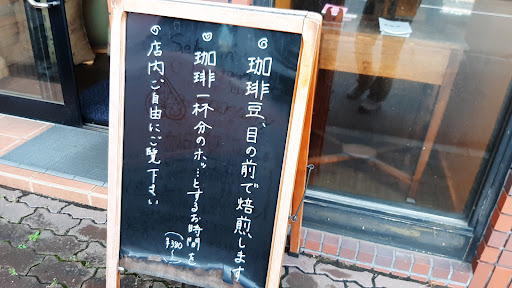 珈琲豆、目の前で焙煎します
珈琲一杯分のホッ…とするお時間を
(¥380〜)
店内ご自由にご覧下さい